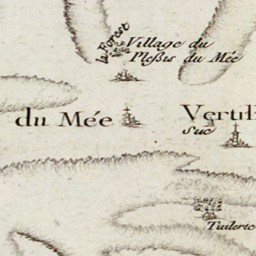 la Forest
Village du
Plessis du Mée
du Mée
Vertilli
suc
Tuilerie